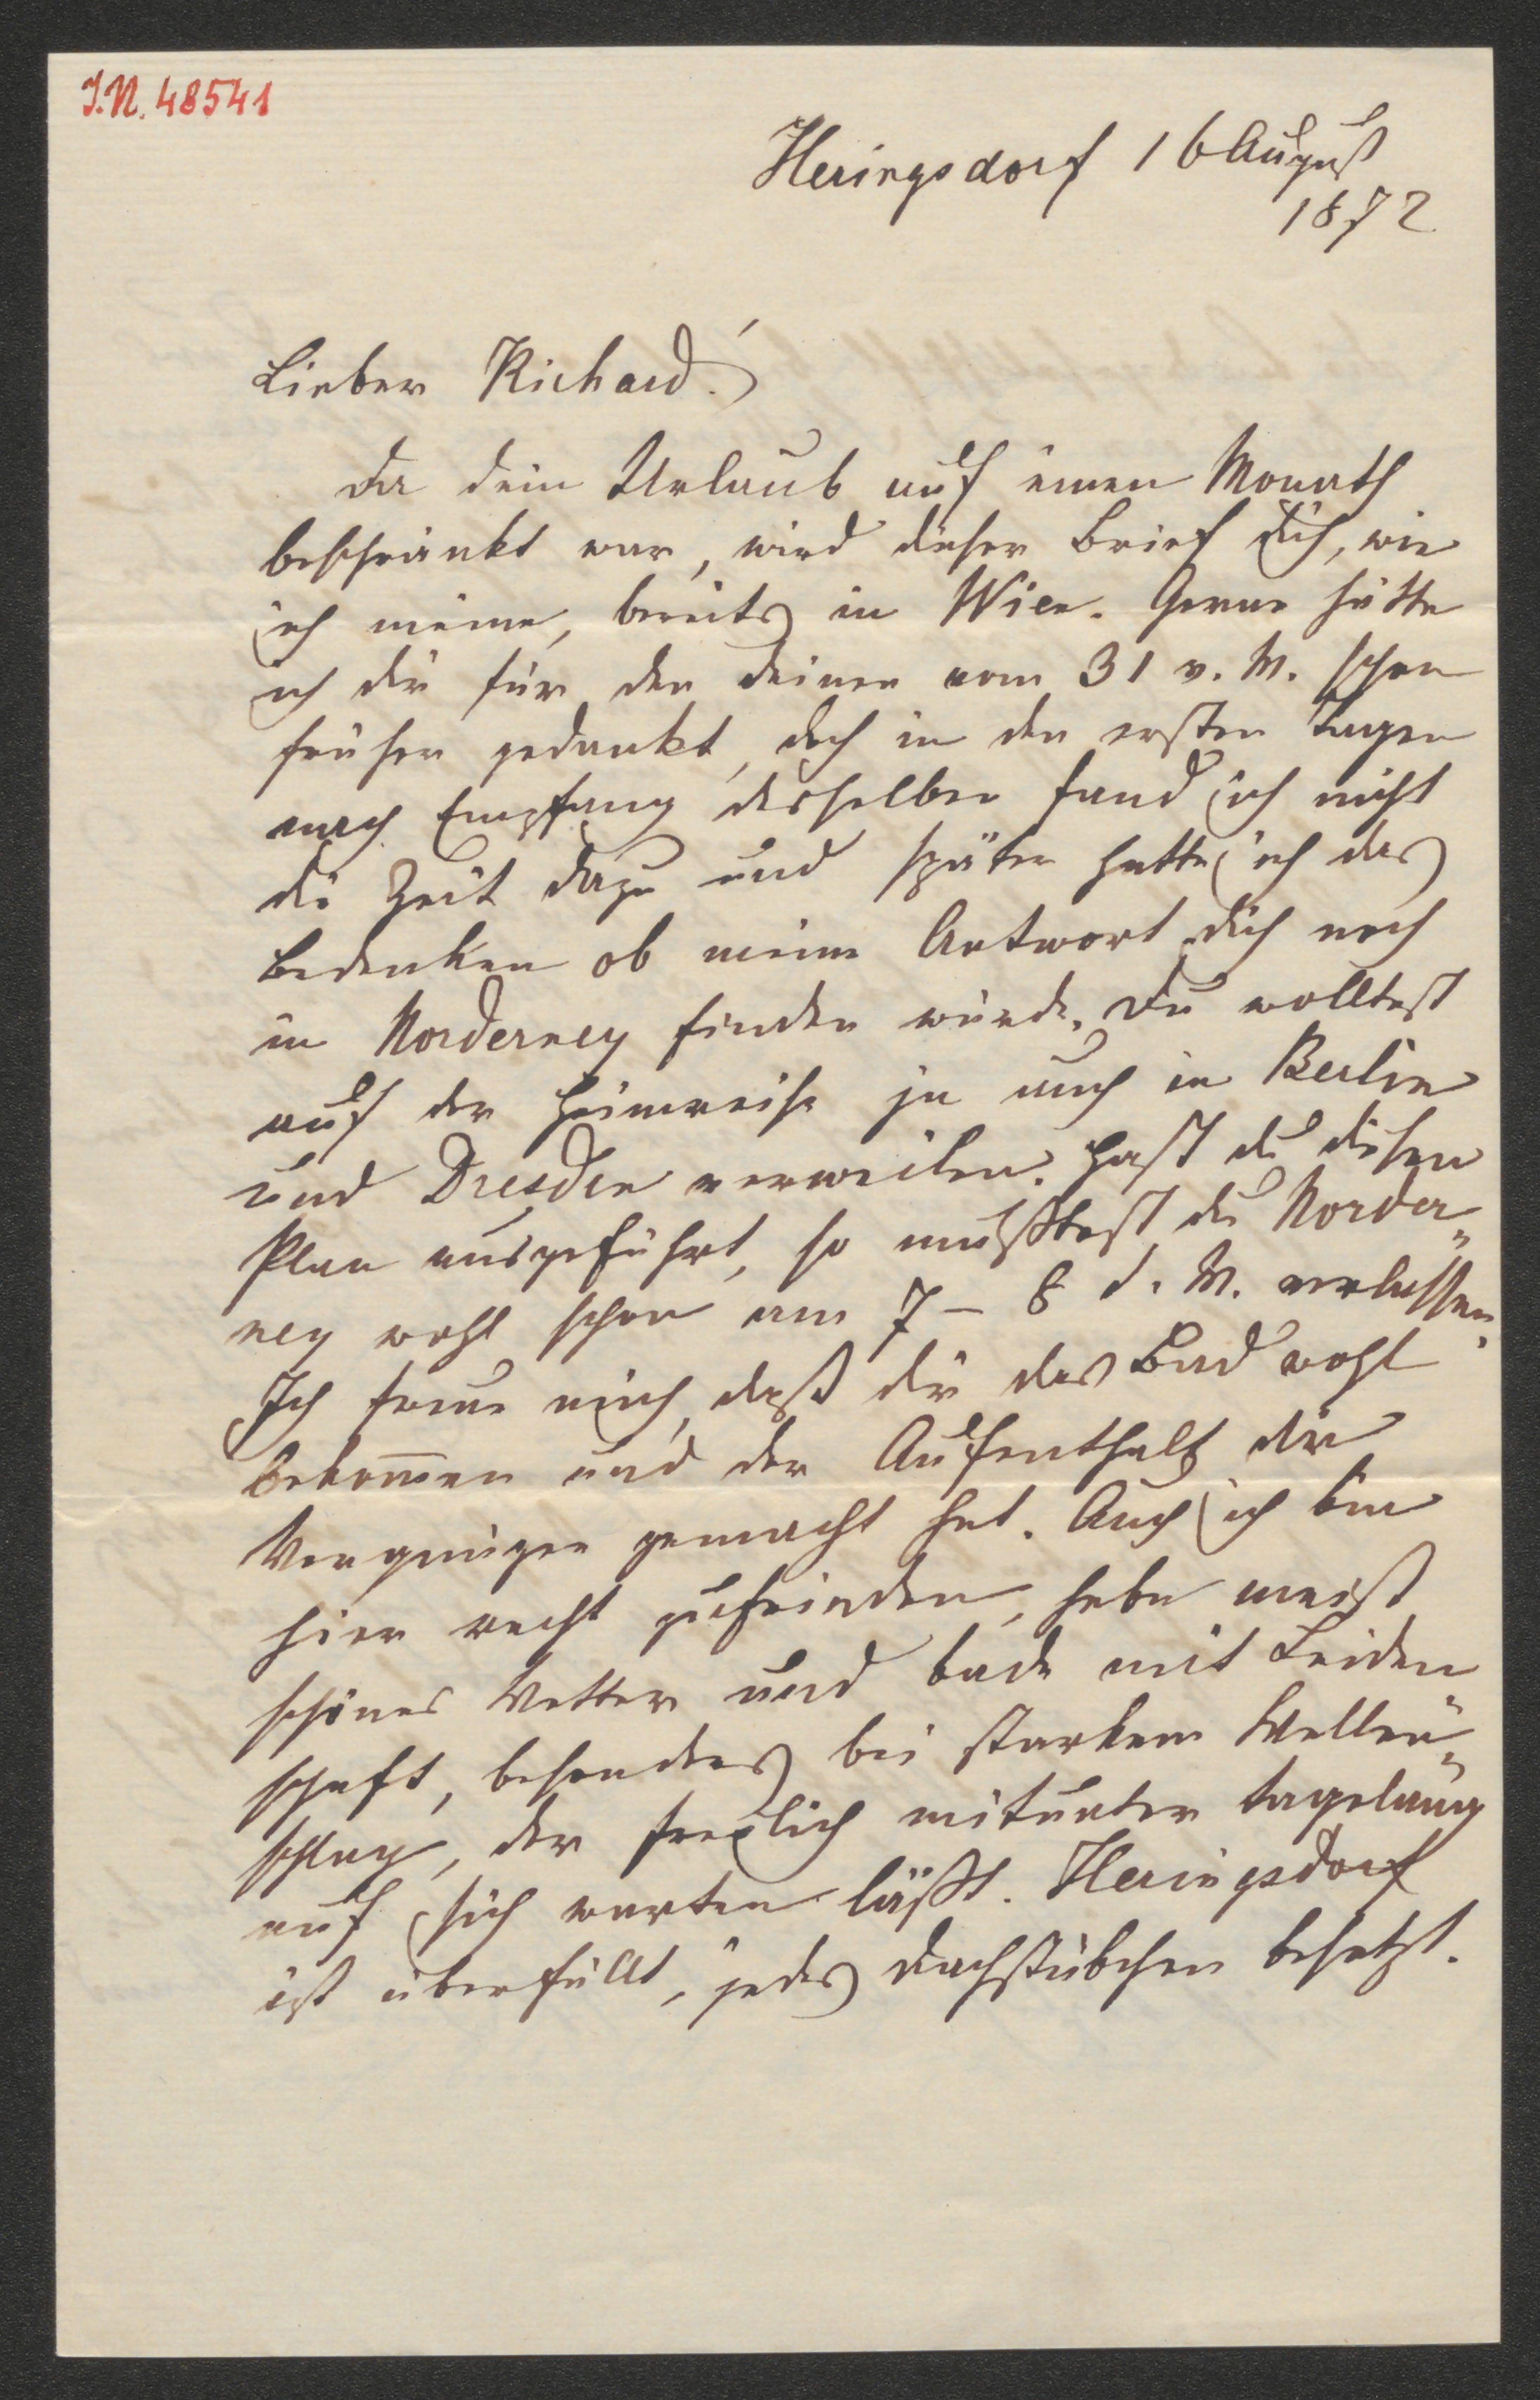 I.N. 48541
Heringsdorf 16 August
1872
Lieber Richard!
Da dein Urlaub auf einen Monath
beschränkt war, wird dieser Brief dich, wie
ich meine, bereits in Wien. Gerne hätte
ich dir für den deinen vom 31 v. M. schon
früher gedankt, doch in den ersten Tagen
nach Empfang desselben fand ich nicht
die Zeit dazu und später hatte ich das
Bedenken ob meine Antwort dich noch
in Norderney finden würde. Du wolltest
auf der Heimreise ja auch in Berlin
und Dresden verweilen. Hast du diesen
Plan ausgeführt, so mußtest du Norder„
ney wohl schon am 7 – 8 d. M. verlassen.
Ich freue mich, daß dir das Bad wohl
bekom̄en und der Aufenthalt dir
Vergnügen gemacht hat. Auch ich bin
hier recht zufrieden, habe meist
schönes Wetter und bade mit Leiden
schaft, besonders bei starkem Wellen„
schlag, der freylich mitunter tagelang
auf sich warten läßt. Heringsdorf
ist überfüllt, jedes Dachstübchen besetzt.